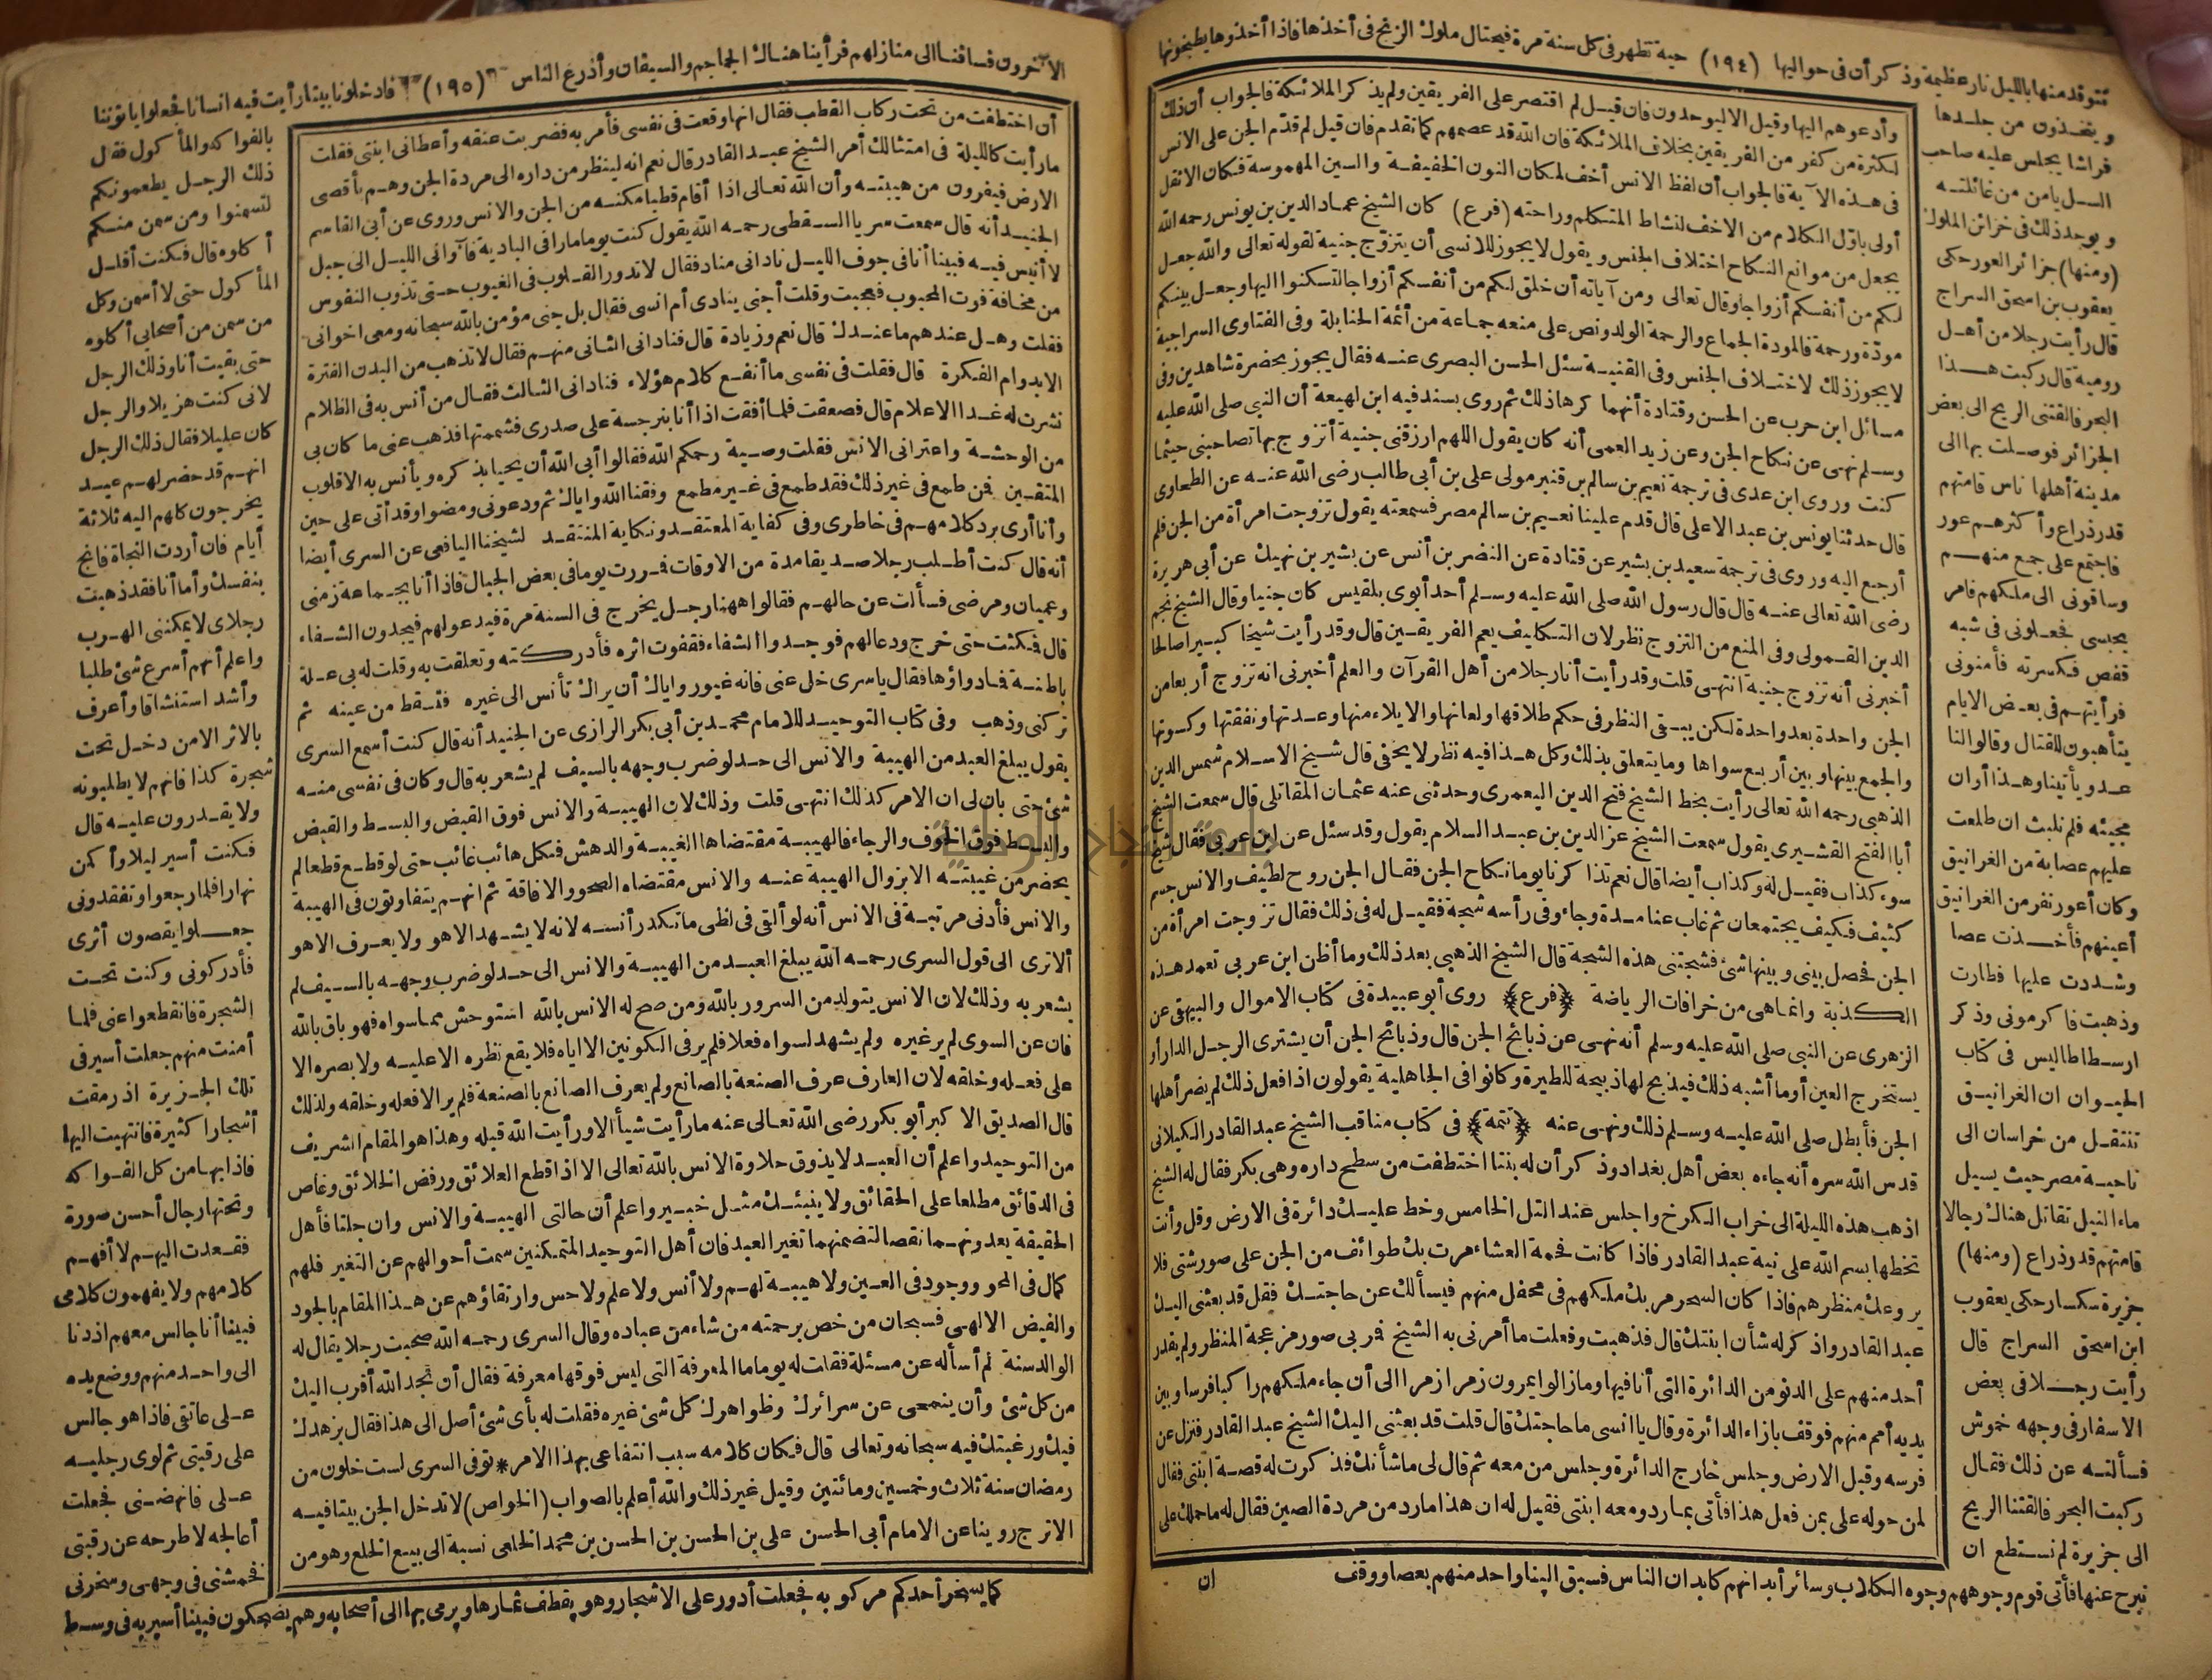 تتوقد منها بالليل نار عظيمة وذكر أن فى حواليها (١٩٤) حية تظهر فى كل سنة مرة فيحتال ملوك الزنج فى أخذها فاذا أخذوها يطبخونها
ويتخذون من جلدها
فراشا يجلس عليه صاحب
السل يامن من غائلته
ويوجد ذلك فى خزائن الملوك
(ومنها) جزائر العور حكى
يعقوب بن اسحق السراج
قال رأيت رجلا من أهل
رومية قال ركبت هذا
البحر فالقتنى الريح الى بعض
الجزائر فوصلت بها الى
مدينة أهلها ناس قامتهم
قدر ذراع وأكثرهم عور
فاجتمع على جمع منهم
وساقونى الى ملكهم فامر
بحبسى فجعلونى فى شبه
قفص فكسرته فأمنونى
فرأيتهم فى بعض الايام
يتأهبون للقتال وقالوا لنا
عدو يأتينا وهذا أوان
مجيئه فلم نلبث ان طلعت
عليهم عصابة من الغرانيق
وكان أعور نفر من الغرانيق
أعينهم فأخذت عصا
وشددت عليها فطارت
وذهبت فاكرمونى وذكر
ارسطاطاليس فى كتاب
الحيوان ان الغرانيق
تنتقل من خراسان الى
ناحية مصر حيث يسيل
ماء النيل تقاتل هناك رجالا
قامتهم قدر ذراع (ومنها)
جزيرة سكسار حكى يعقوب
ابن اسحق السراج قال
رأيت رجلا فى بعض
الاسفار فى وجهه خموش
فسألته عن ذلك فقال
ركبت البحر فالقتنا الريح
الى جزيرة لم نستطع ان
نبرح عنها فأتى قوم وجوههم وجوه الكلاب وسائر أبدانهم كابدان الناس فسبق الينا واحد منهم بعصا ووقف
وأدعوهم اليها وقيل الا ليوحدون فان قيل لم اقتصر على الفريقين ولم يذكر الملائكة فالجواب أن ذلك
لكثرة من كفر من الفريقين بخلاف الملائكة فان الله قد عصمهم كما تقدم فان قيل لم قدم الجن على الانس
فى هذه الآية فالجواب أن لفظ الانس أخف لمكان النون الخفيفة والسين المهموسة فكان الاثقل
أولى باول الكلام من الاخف لنشاط المتكلم وراحته (فرع) كان الشيخ عماد الدين بن يونس رحمه الله
يجعل من موانع النكاح اختلاف الجنس ويقول لا يجوز للانسى أن يتزوج جنية لقوله تعالى والله جعل
لكم من أنفسكم أزواجا وقال تعالى ومن آياته أن خلق لكم من أنفسكم أزواجا لتسكنوا اليها وجعل بينكم
مودة ورحمة فالمودة الجماع والرحمة الولد ونص على منعه جماعة من أئمة الحنابلة وفى الفتاوى السراجية
لا يجوز ذلك لاختلاف الجنس وفى القنية سئل الحسن البصرى عنه فقال يجوز بحضرة شاهدين وفى
مسائل ابن حرب عن الحسن وقتادة أنهما كرها ذلك ثم روى بسند فيه ابن لهيعة أن النبى صلى الله عليه
وسلم نهى عن نكاح الجن وعن زيد العمى أنه كان يقول اللهم ارزقنى جنية أتزوج بها تصاحبنى حيثما
كنت وروى ابن عدى فى ترجمة نعيم بن سالم بن قنبر مولى على بن أبى طالب رضى الله عنه عن الطحاوى
قال حدثنا يونس بن عبد الاعلى قال قدم علينا نعيم بن سالم مصر فسمعته يقول تزوجت امرأة من الجن فلم
أرجع اليه وروى فى ترجمة سعيد بن بشير عن قتادة عن النضر بن أنس عن بشير بن نهيك عن أبى هريرة
رضى الله تعالى عنه قال قال رسول الله صلى الله عليه وسلم أحد أبوى بلقيس كان جنيا وقال الشيخ نجم
الدين القمولى وفى المنع من التزوج نظر لان التكليف يعم الفريقين قال وقد رأيت شيخا كبيرا صالحا
أخبرنى أنه تزوج جنية انتهى قلت وقد رأيت أنا رجلا من أهل القرآن والعلم أخبرنى انه تزوج أربعا من
الجن واحدة بعد واحدة لكن يبقى النظر فى حكم طلاقها ولعانها والايلاء منها وعدتها ونفقتها وكسوتها
والجمع بينها وبين أربع سواها وما يتعلق بذلك وكل هذا فيه نظر لا يخفى قال شيخ الاسلام شمس الدين
الذهبى رحمه الله تعالى رأيت بخط الشيخ فتح الدين اليعمرى وحدثنى عنه عثمان المقاتلى قال سمعت الشيخ
أبا الفتح القشيرى يقول سمعت الشيخ عز الدين بن عبد السلام يقول وقد سئل عن ابن عربى فقال شيخ
سوء كذاب فقيل له وكذاب أيضا قال نعم تذاكرنا يوما نكاح الجن فقال الجن روح لطيف والانس جسم
كثيف فكيف يجتمعان ثم غاب عنا مدة وجاء وفى رأسه شجة فقيل له فى ذلك فقال تزوجت امرأة من
الجن فحصل بينى وبينها شئ فشجتنى هذه الشجة قال الشيخ الذهبى بعد ذلك وما أظن ابن عربى تعمد هذه
الكذبة وانما هى من خرافات الرياضة (فرع) روى أبو عبيدة فى كتاب الاموال والبيهقى عن
الزهرى عن النبى صلى الله عليه وسلم أنه نهى عن ذبائح الجن قال وذبائح الجن أن يشترى الرجل الدار أو
يستخرج العين أو ما أشبه ذلك فيذبح لها ذبيحة للطيرة وكانوا فى الجاهلية يقولون اذا فعل ذلك لم يضر أهلها
الجن فأبطل صلى الله عليه وسلم ذلك ونهى عنه (تتمة) فى كتاب مناقب الشيخ عبد القادر الكيلانى
قدس الله سره أنه جاءه بعض أهل بغداد وذكر أن له بنتا اختطفت من سطح داره وهى بكر فقال له الشيخ
اذهب هذه الليلة الى خراب الكرخ واجلس عند التل الخامس وخط عليك دائرة فى الارض وقل وأنت
تخطها بسم الله على نية عبد القادر فاذا كانت فحمة العشاء مرت بك طوائف من الجن على صور شتى فلا
يروعك منظرهم فاذا كان السحر مر بك ملكهم فى محفل منهم فيسألك عن حاجتك فقل قد بعثنى اليك
عبد القادر واذكر له شأن ابنتك قال فذهبت وفعلت ما أمرنى به الشيخ فمر بى صور مزعجة المنظر ولم يقدر
أحد منهم على الدنو من الدائرة التى أنا فيها وما زالوا يمرون زمرا زمرا الى أن جاء ملكهم راكبا فرسا وبين
يديه أمم منهم فوقف بازاء الدائرة وقال يا انسى ما حاجتك قال قلت قد بعثنى اليك الشيخ عبد القادر فنزل عن
فرسه وقبل الارض وجلس خارج الدائرة وجلس من معه ثم قال لى ما شأنك فذكرت له قصة ابنتى فقال
لمن حوله على بمن فعل هذا فأتى بمارد ومعه ابنتى فقيل له ان هذا مارد من مردة الصين فقال له ما حملك على
ان
الآخرون فساقنا الى منازلهم فرأينا هناك الجماجم والسيقان وأذرع الناس (١٩٥) فادخلونا بيتا رأيت فيه انسانا فجعلوا ياتوننا
أن اختطفت من تحت ركاب القطب فقال انها وقعت فى نفسى فأمر به فضربت عنقه وأعطانى ابنتى فقلت
ما رأيت كالليلة فى امتثالك أمر الشيخ عبد القادر قال نعم انه لينظر من داره الى مردة الجن وهم بأقصى
الارض فيفرون من هيبته وأن الله تعالى اذا أقام قطبا مكنه من الجن والانس وروى عن أبى القاسم
الجنيد أنه قال سمعت سريا السقطى رحمه الله يقول كنت يوما مارا فى البادية فآوانى الليل الى جبل
لا أنيس فيه فبينا أنا فى جوف الليل نادانى مناد فقال لا تدور القلوب فى الغيوب حتى تذوب النفوس
من مخافة فوت المحبوب فعجبت وقلت أجنى ينادى أم انسى فقال بل جنى مؤمن بالله سبحانه ومعى اخوانى
فقلت وهل عندهم ما عندك قال نعم وزيادة قال فنادانى الثانى منهم فقال لا تذهب من البدن الفترة
الا بدوام الفكرة قال فقلت فى نفسى ما أنفع كلام هؤلاء فنادانى الثالث فقال من أنس به فى الظلام
نشرت له غدا الاعلام قال فصعقت فلما أفقت اذا أنا بنرجسة على صدرى فشممتها فذهب عنى ما كان بى
من الوحشة واعترانى الانس فقلت وصية رحمكم الله فقالوا أبى الله أن يحيا بذكره ويأنس به الا قلوب
المتقين فمن طمع فى غير ذلك فقد طمع فى غير مطمع وفقنا الله واياك ثم ودعونى ومضوا وقد أتى على حين
وأنا أرى برد كلامهم فى خاطرى وفى كفاية المعتقد ونكاية المنتقد لشيخنا اليافعى عن السرى أيضا
أنه قال كنت أطلب رجلا صديقا مدة من الاوقات فمررت يوما فى بعض الجبال فاذا أنا بجماعة زمنى
وعميان ومرضى فسألت عن حالهم فقالوا ههنا رجل يخرج فى السنة مرة فيدعو لهم فيجدون الشفاء
قال فمكثت حتى خرج ودعا لهم فوجدوا الشفاء فقفوت اثره فأدركته وتعلقت به وقلت له بى علة
باطنة فما دواؤها فقال يا سرى خل عنى فانه غيور واياك أن يراك تأنس الى غيره فتسقط من عينه ثم
تركنى وذهب وفى كتاب التوحيد للامام محمد بن أبى بكر الرازى عن الجنيد أنه قال كنت أسمع السرى
يقول يبلغ العبد من الهيبة والانس الى حد لو ضرب وجهه بالسيف لم يشعر به قال وكان فى نفسى منه
شئ حتى بان لى ان الامر كذلك انتهى قلت وذلك لان الهيبة والانس فوق القبض والبسط والقبض
والبسط فوق الخوف والرجاء فالهيبة مقتضاها الغيبة والدهش فكل هائب غائب حتى لو قطع قطعا لم
يحضر من غيبته الا بزوال الهيبة عنه والانس مقتضاه الصحو والافاقة ثم انهم يتفاوتون فى الهيبة
والانس فأدنى مرتبة فى الانس أنه لو ألقى فى لظى ما تكدر أنسه لانه لا يشهد الا هو ولا يعرف الا هو
ألا ترى الى قول السرى رحمه الله يبلغ العبد من الهيبة والانس الى حد لو ضرب وجهه بالسيف لم
يشعر به وذلك لان الانس يتولد من السرور بالله ومن صح له الانس بالله استوحش مما سواه فهو باق بالله
فان عن السوى لم ير غيره ولم يشهد لسواه فعلا فلم ير فى الكونين الا اياه فلا يقع نظره الا عليه ولا بصره الا
على فعله وخلقه لان العارف عرف الصنعة بالصانع ولم يعرف الصانع بالصنعة فلم ير الا فعله وخلقه ولذلك
قال الصديق الاكبر أبو بكر رضى الله تعالى عنه ما رأيت شيأ الا ورأيت الله قبله وهذا هو المقام الشريف
من التوحيد واعلم أن العبد لا يذوق حلاوة الانس بالله تعالى الا اذا قطع العلائق ورفض الخلائق وغاص
فى الدقائق مطلعا على الحقائق ولا ينبئك مثل خبير واعلم أن حالتى الهيبة والانس وان جلتا فأهل
الحقيقة يعدونهما نقصا لتضمنهما تغير العبد فان أهل التوحيد المتمكنين سمت أحوالهم عن التغير فلهم
كمال فى المحو ووجود فى العين ولا هيبة لهم ولا أنس ولا علم ولا حس وارتقاؤهم عن هذا المقام بالجود
والفيض الالهى فسبحان من خص برحمته من شاء من عباده وقال السرى رحمه الله صحبت رجلا يقال له
الوالد سنة لم أسأله عن مسئلة فقلت له يوما ما المعرفة التى ليس فوقها معرفة فقال أن تجد الله أقرب اليك
من كل شئ وأن ينمحى عن سرائرك وظواهرك كل شئ غيره فقلت له بأى شئ أصل الى هذا فقال بزهدك
فيك ورغبتك فيه سبحانه وتعالى قال فكان كلامه سبب انتفاعى بهذا الامر * توفى السرى لست خلون من
رمضان سنة ثلاث وخمسين ومائتين وقيل غير ذلك والله أعلم بالصواب (الخواص) لا تدخل الجن بيتا فيه
الاترج روينا عن الامام أبى الحسن على بن الحسن بن الحسن بن محمد الخلعى نسبة الى بيع الخلع وهو من
بالفواكه والمأكول فقال
ذلك الرجل يطعمونكم
لتسمنوا ومن سمن منكم
أكلوه قال فكنت أقلل
المأكول حتى لا أسمن وكل
من سمن من أصحابى أكلوه
حتى بقيت أنا وذلك الرجل
لانى كنت هزيلا والرجل
كان عليلا فقال ذلك الرجل
انهم قد حضر لهم عيد
يخرجون كلهم اليه ثلاثة
أيام فان أردت النجاة فانج
بنفسك وأما أنا فقد ذهبت
رجلاى لا يمكننى الهرب
واعلم أنهم أسرع شئ طلبا
وأشد استنشاقا وأعرف
بالاثر الا من دخل تحت
شجرة كذا فانهم لا يطلبونه
ولا يقدرون عليه قال
فكنت أسير ليلا وأكمن
نهارا فلما رجعوا وتفقدونى
جعلوا يقصون أثرى
فأدركونى وكنت تحت
الشجرة فانقطعوا عنى فلما
أمنت منهم جعلت أسير فى
تلك الجزيرة اذ رمقت
أشجارا كثيرة فانتهيت اليها
فاذا بها من كل الفواكه
وتحتها رجال أحسن صورة
فقعدت اليهم لا أفهم
كلامهم ولا يفهمون كلامى
فبينا أنا جالس معهم اذ دنا
الى واحد منهم ووضع يده
على عاتقى فاذا هو جالس
على رقبتى ثم لوى رجليه
على فانهضنى فجعلت
أعالجه لاطرحه عن رقبتى
فخمشنى فى وجهى وسخرنى
كما يسخر أحدكم مركوبه فجعلت أدور على الاشجار وهو يقطف ثمارها ويرمى بها الى أصحابه وهم يضحكون فبينا أسير به فى وسط